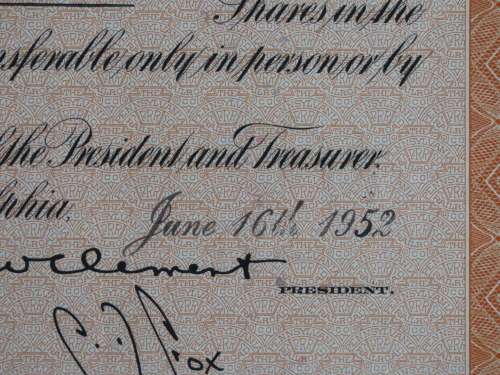 Shares in the
transferable only in person or by
the President and Treasurer.
June 16th 1952
Clement
PRESIDENT.
Fox